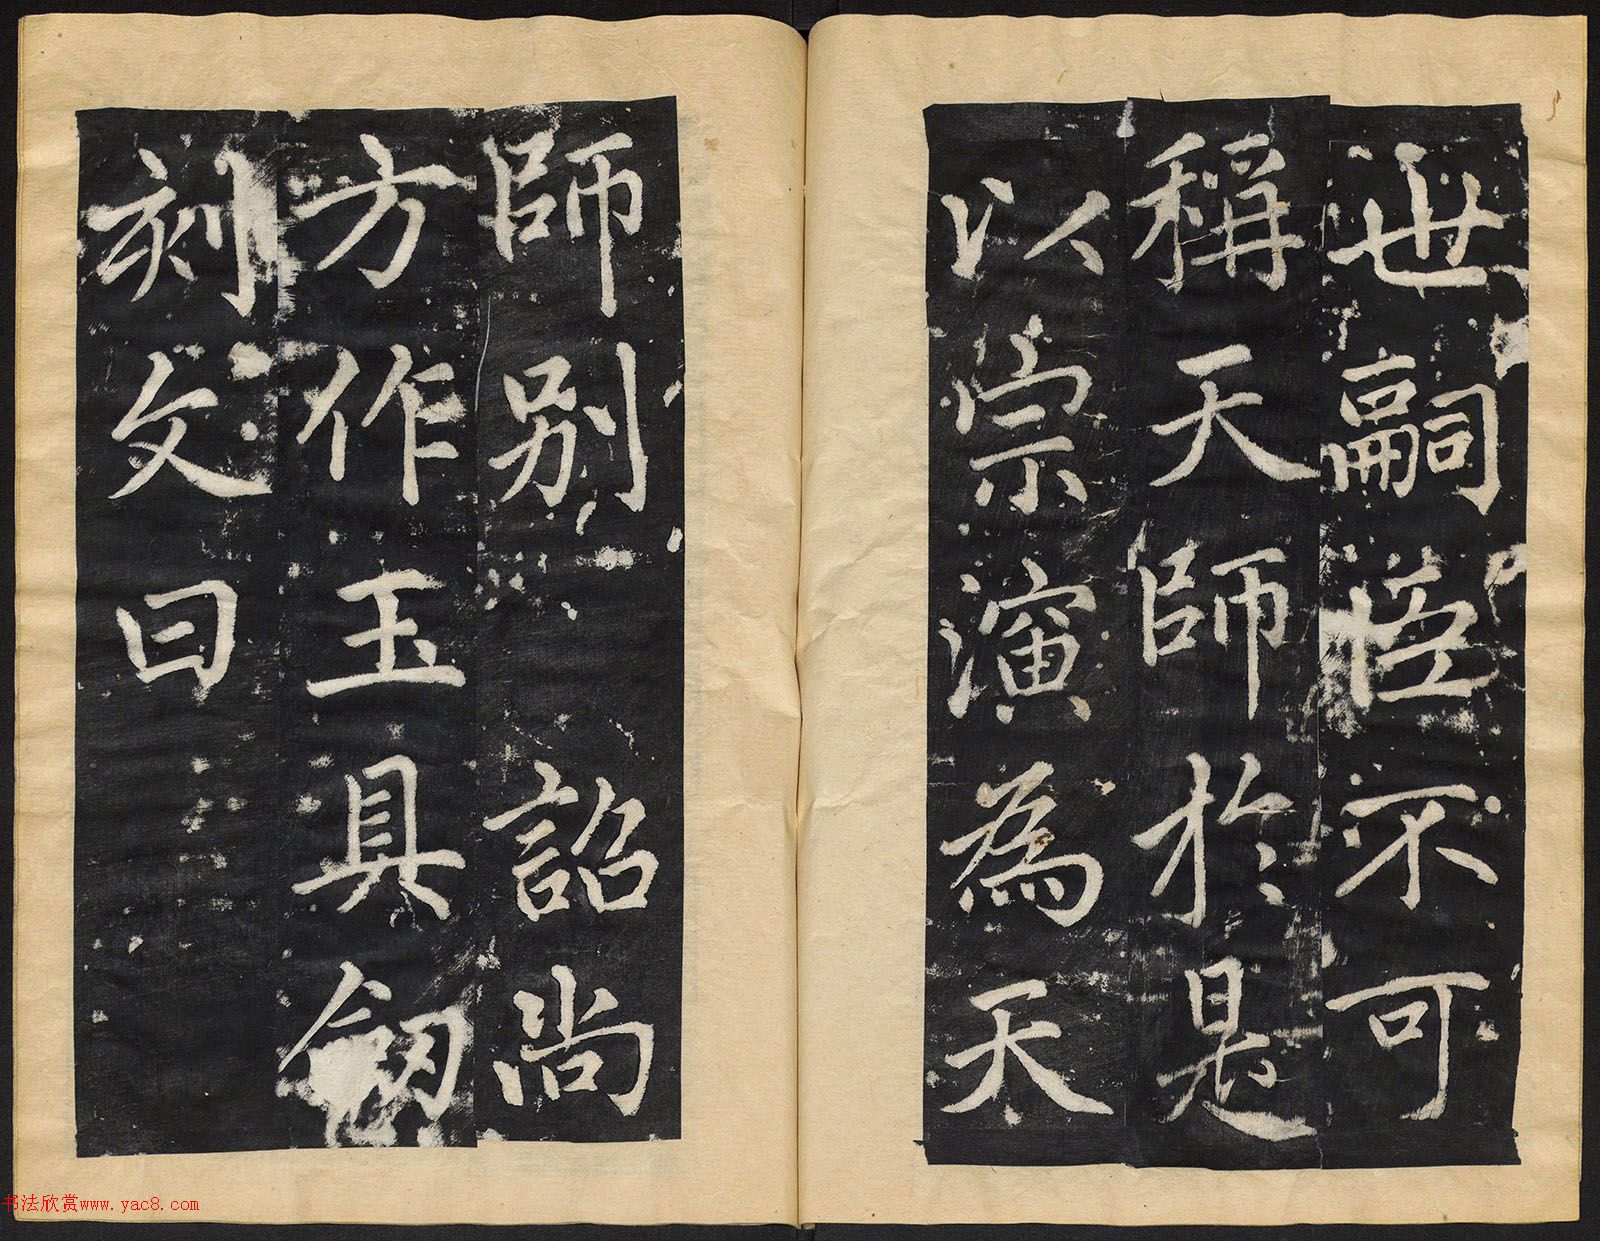 世嗣怪不可
稱天師於是
以宗演為天
師别 詔尚
方作玉具劒
刻文曰
书法欣赏www.yac8.com